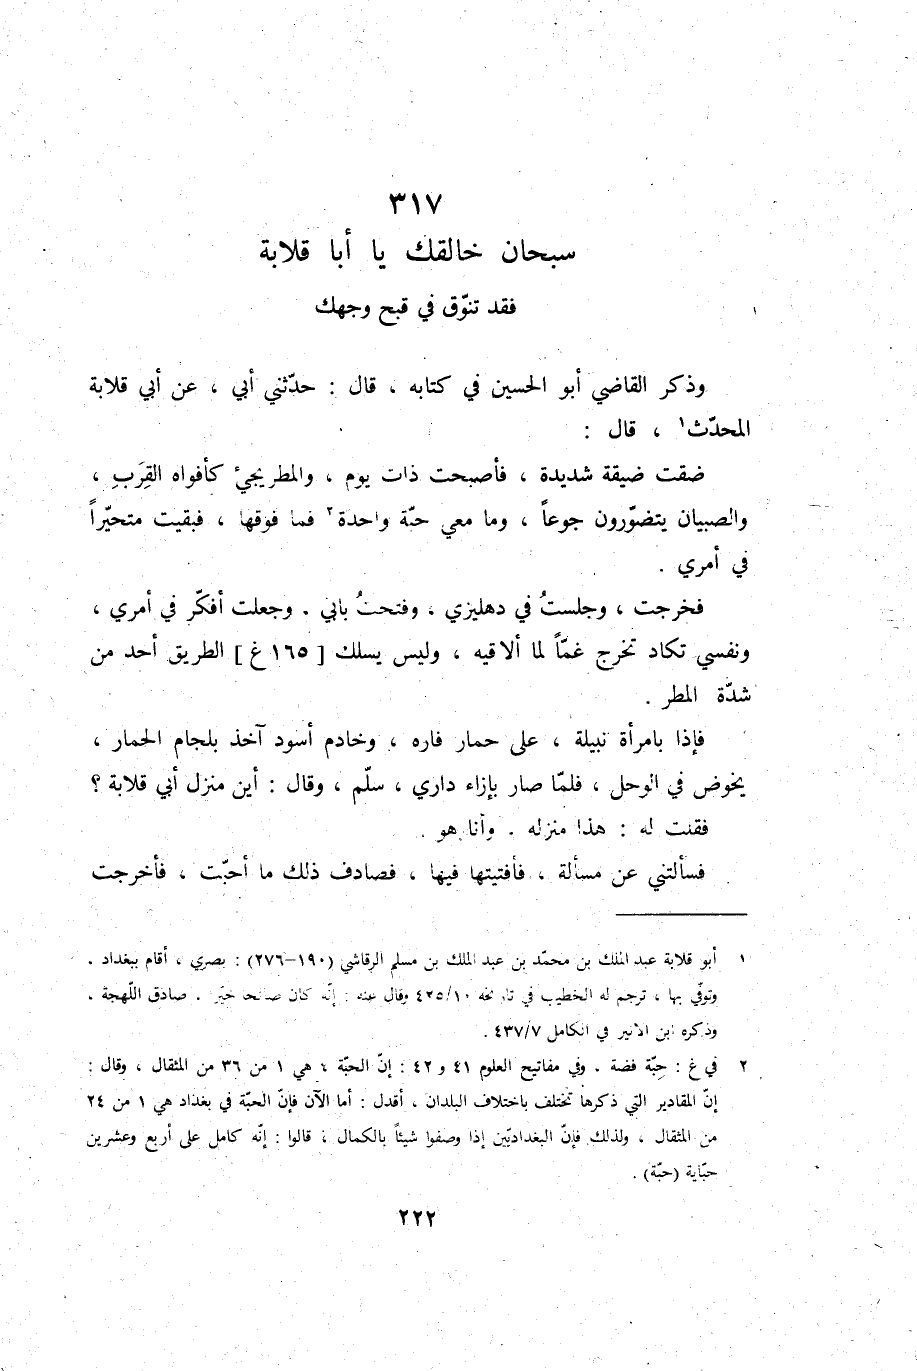 ٣١٧
سبحان خالقك يا أبا قلابة
فقد تنوّق في قبح وجهك
وذكر القاضي أبو الحسين في كتابه ، قال : حدّثني أبي ، عن أبي قلابة
المحدّث١ ، قال :
ضقت ضيقة شديدة ، فأصبحت ذات يوم ، والمطر يجيْ كأفواه القِرَبِ ،
والصبيان يتضوّرون جوعاً ، وما معي حبّة واحدة٢ فما فوقها ، فبقيت متحيّراً
في أمري .
فخرجت ، وجلستُ في دهليزي ، وفتحتُ بابي . وجعلت أفكّر في أمري ،
ونفسي تكاد تخرج غمّاً لما ألاقيه ، وليس يسلك [ ١٦٥ غ ] الطريق أحد من
شدّة المطر .
فإذا بامرأة نبيلة ، على حمار فاره ، وخادم أسود آخذ بلجام الحمار ،
يخوض في الوحل ، فلمّا صار بإزاء داري ، سلّم ، وقال : أين منزل أبي قلابة ؟
فقلت له : هذا منزله . وأنا هو .
فسألتني عن مسألة ، فأفتيتها فيها ، فصادف ذلك ما أحبّت ، فأخرجت
١ أبو قلابة عبد الملك بن محمّد بن عبد الملك بن مسلم الرقاشي (١٩٠–٢٧٦) : بصري ، أقام ببغداد .
وتوفّي بها ، ترجم له الخطيب في تاريخه ٤٢٥/١٠ وقال عنه : إنّه كان صالحا خيّر . صادق اللّهجة .
وذكره ابن الأثير في الكامل ٤٣٧/٧ .
٢ في غ : حبّة فضة . وفي مفاتيح العلوم ٤١ و ٤٢ : إنّ الحبّة ، هي ١ من ٣٦ من المثقال ، وقال :
إنّ المقادير التي ذكرها تختلف باختلاف البلدان ، أقدل : أما الآن فإنّ الحبّة في بغداد هي ١ من ٢٤
من المثقال ، ولذلك فإنّ البغداديّين إذا وصفوا شيئاً بالكمال ، قالوا : إنّه كامل على أربع وعشرين
حبّاية (حبّة) .
٢٢٢